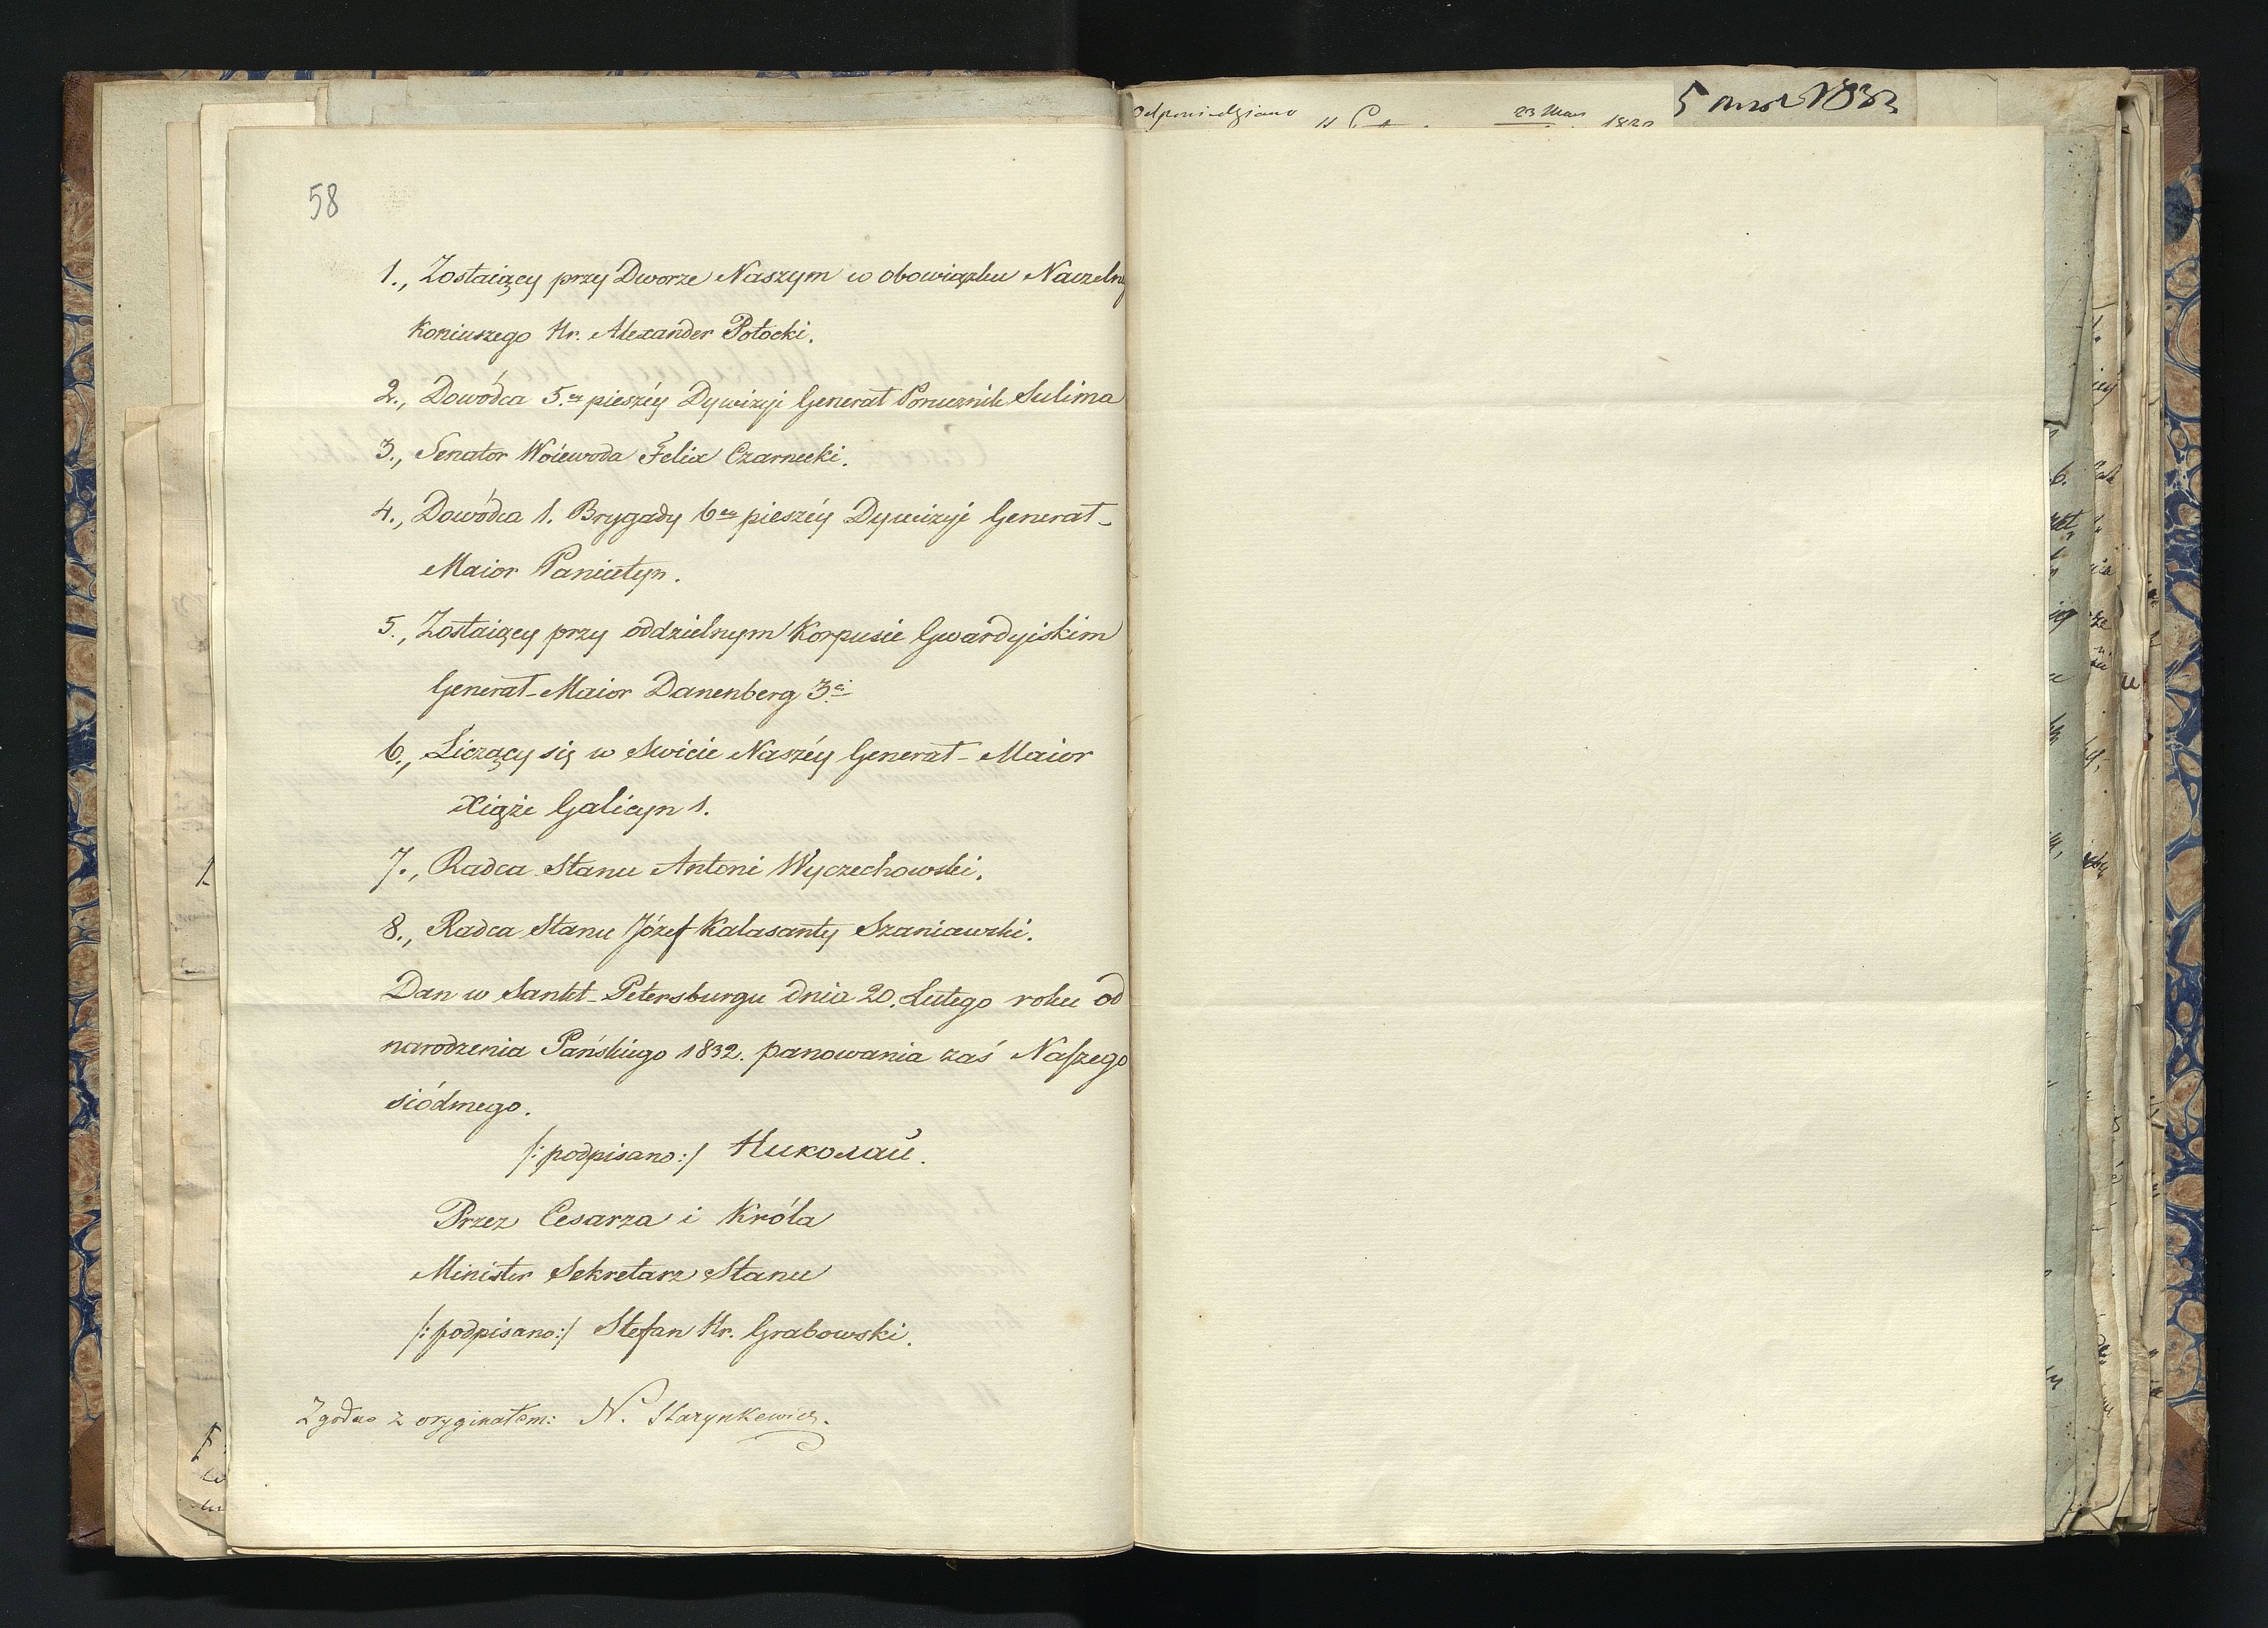 58
1., Zostaiący przy Dworze Naszym w obowiązku Naczeln
Koniuszego Hr. Alexander Potocki.
2., Dowódca 5.ey pieszéy Dywizyi Generał Porucznik Sulima
3., Senator Woiewoda Felix Czarnecki.
4., Dowódca 1. Brygady 6ey pieszéy Dywizyi Generał-
Maior Paniutyn.
5., Zostaiący przy oddzielnym Korpusie Gwardyiskim
Generał-Maior Danenberg 3ci
6., Liczący się w Swicie Naszéy Generał-Maior
Xiąże Galicyn 1.
7., Radca Stanu Antoni Wyczechowski.
8., Radca Stanu Józef Kalasanty Szaniawski.
Dan w Sankt-Petersburgu dnia 20. Lutego roku od
narodzenia Pańskiego 1832. panowania zaś Naszego
siódmego.
/: podpisano :/ Николай.
Przez Cesarza i Króla
Minister Sekretarz Stanu
/: podpisano :/ Stefan Hr. Grabowski.
Zgodno z oryginałem: N. Starynkewicz.
Odpowiedziano 23 Mar 1832
5 1832